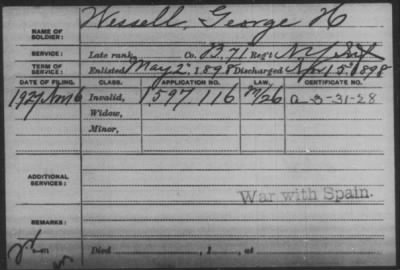 NAME OF SOLDIER: Wessell, George H
SERVICE: Late rank, Co. B. 71 Reg't N.Y. Inf
TERM OF SERVICE: Enlisted May 2, 1898 Discharged Nov. 15, 1898
DATE OF FILING. CLASS. APPLICATION NO. LAW. CERTIFICATE NO.
1927 Nov 6 Invalid, 1597,116 M/26 a 3-31-28
Widow,
Minor,
ADDITIONAL SERVICES:
War with Spain.
REMARKS:
Died , 1 , at